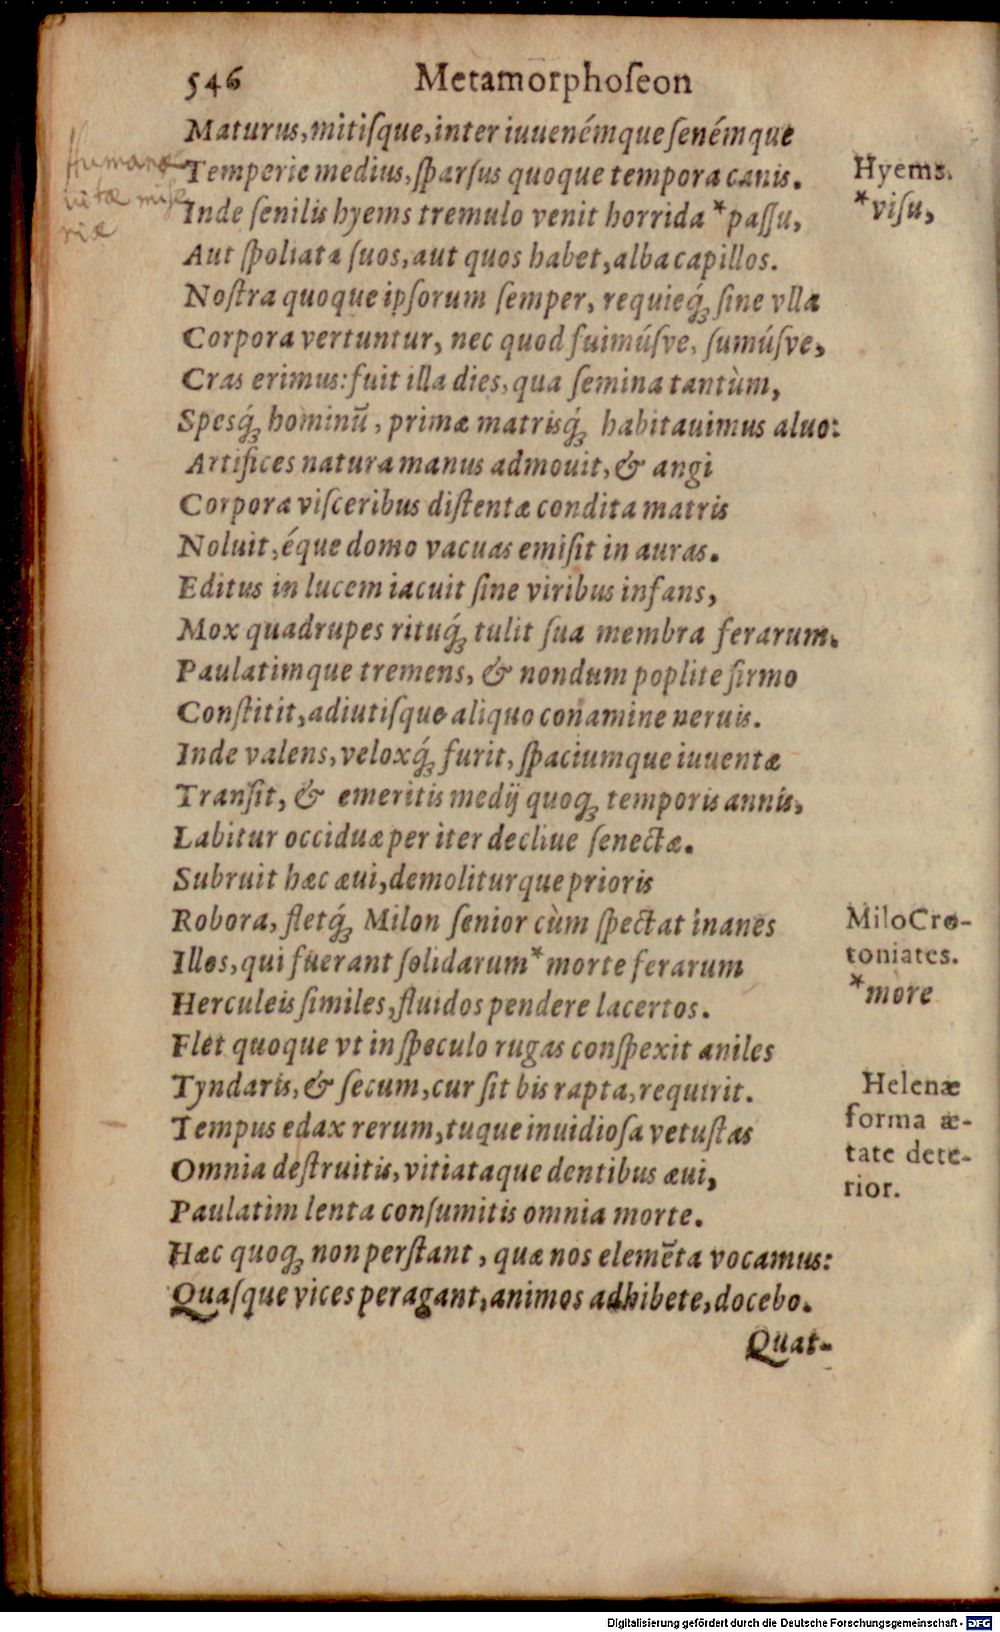 546 Metamorphoſeon
Maturus, mitiſque, inter iuuenémque ſenémque
Temperie medius, ſparſus quoque tempora canis.
Inde ſenilis hyems tremulo venit horrida *paſſu,
Aut ſpoliata ſuos, aut quos habet, alba capillos.
Noſtra quoque ipſorum ſemper, requieq́; ſine vlla
Corpora vertuntur, nec quod fuimúſve, ſumúſve,
Cras erimus: fuit illa dies, qua ſemina tantùm,
Spesq́; hominũ, primæ matrisq́; habitauimus aluo:
Artifices natura manus admouit, & angi
Corpora viſceribus diſtentæ condita matris
Noluit, éque domo vacuas emiſit in auras.
Editus in lucem iacuit ſine viribus infans,
Mox quadrupes rituq́; tulit ſua membra ferarum.
Paulatimque tremens, & nondum poplite firmo
Conſtitit, adiutiſque aliquo conamine neruis.
Inde valens, veloxq́; furit, ſpaciumque iuuentæ
Tranſit, & emeritis medij quoq; temporis annis,
Labitur occiduæ per iter decliue ſenectæ.
Subruit hæc æui, demoliturque prioris
Robora, fletq́; Milon ſenior cùm ſpectat inanes
Illos, qui fuerant ſolidarum *morte ferarum
Herculeis ſimiles, fluidos pendere lacertos.
Flet quoque vt in ſpeculo rugas conſpexit aniles
Tyndaris, & ſecum, cur ſit bis rapta, requirit.
Tempus edax rerum, tuque inuidioſa vetuſtas
Omnia deſtruitis, vitiataque dentibus æui,
Paulatim lenta conſumitis omnia morte.
Hæc quoq; non perſtant, quæ nos elemẽta vocamus:
Quaſque vices peragant, animos adhibete, docebo.
Quat-
Humanæ
uitæ miſe
riæ
Hyems.
*viſu,
Milo Cro-
toniates.
*more
Helenæ
forma æ-
tate dete-
rior.
Digitalisierung gefördert durch die Deutsche Forschungsgemeinschaft - DFG